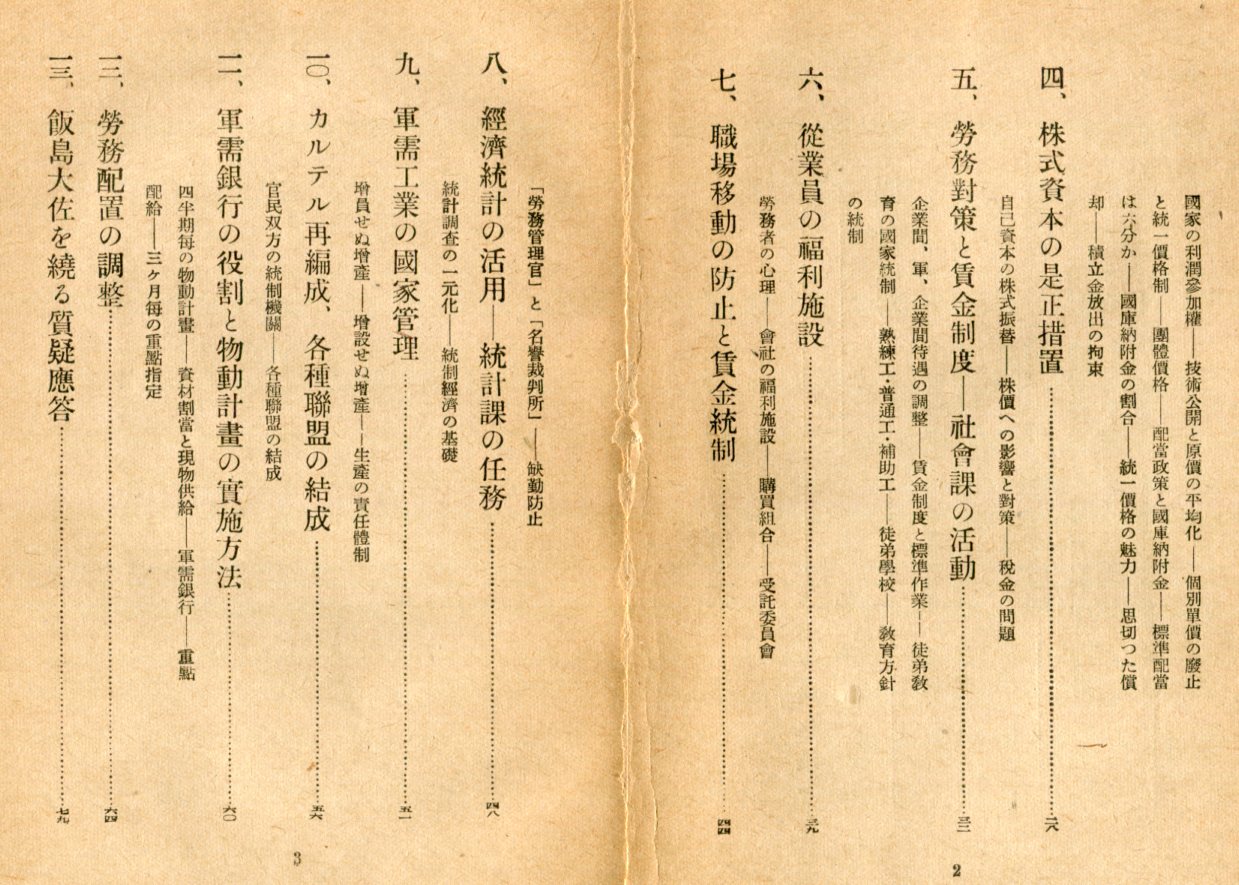 國家の利潤參加權——技術公開と原價の平均化——個別單價の廢止
と統一價格制——團體價格　配當政策と國庫納附金——標準配當
は六分か——國庫納附金の割合——統一價格の魅力——思切つた償
却——積立金放出の拘束
四、株式資本の是正措置……二八
自己資本の株式振替——株價への影響と對策——稅金の問題
五、勞務對策と賃金制度——社會課の活動……三二
企業間、軍、企業間待遇の調整——賃金制度と標準作業——徒弟敎
育の國家統制——熟練工・普通工・補助工——徒弟學校——敎育方針
の統制
六、從業員の福利施設……三九
勞務者の心理——會社の福利施設——購買組合——受託委員會
七、職場移動の防止と賃金統制……四四
2
「勞務管理官」と「名譽裁判所」——缺勤防止
八、經濟統計の活用——統計課の任務……四八
統計調査の一元化——統制經濟の基礎
九、軍需工業の國家管理……五一
增員せぬ增產——增設せぬ增產——生產の責任體制
一〇、カルテル再編成、各種聯盟の結成……五六
官民双方の統制機關——各種聯盟の結成
一一、軍需銀行の役割と物動計畫の實施方法……六〇
四半期每の物動計畫——資材割當と現物供給——軍需銀行——重點
配給——三ヶ月每の重點指定
一二、勞務配置の調整……六四
一三、飯島大佐を繞る質疑應答……七九
3